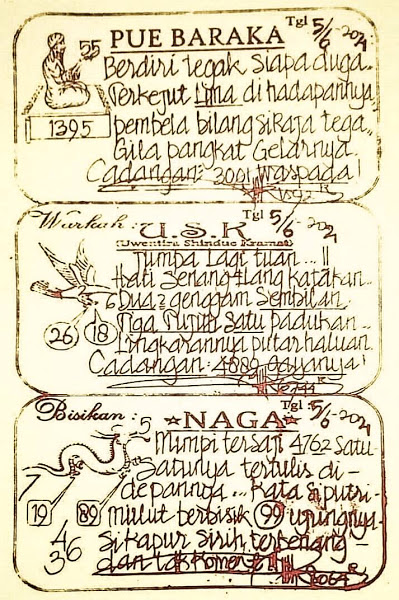 PUE BARAKA Tgl 5/6-2024
55
Berdiri tegak siapa duga..
Terkejut Lima dihadapannya
1395
pembela bilang si Raja tega..
Gila pangkat Gelarnya
Cadangan: 3001 waspada!
Warkah: U.S.K Tgl 5/6-2024
(Uwentira Shindue Kramat)
Jumpa lagi tuan...!!
Hati Senang 4 Lang katakan..
6 Dua2 genggam Sembilan
26 18
Tiga Tujuh Satu padukan...
Lingkarannya putar haluan
Cadangan: 4889 Gayanya!
Bisikan: NAGA Tgl 5/6-2024
5
Mimpi tersaji 4762 Satu-
Satunya tertulis di-
7
depannya... kata si putri-
19 89
mulut berbisik 99 ujungnya-
46
si kapur sirih terkenang-
36
dan tak komen!